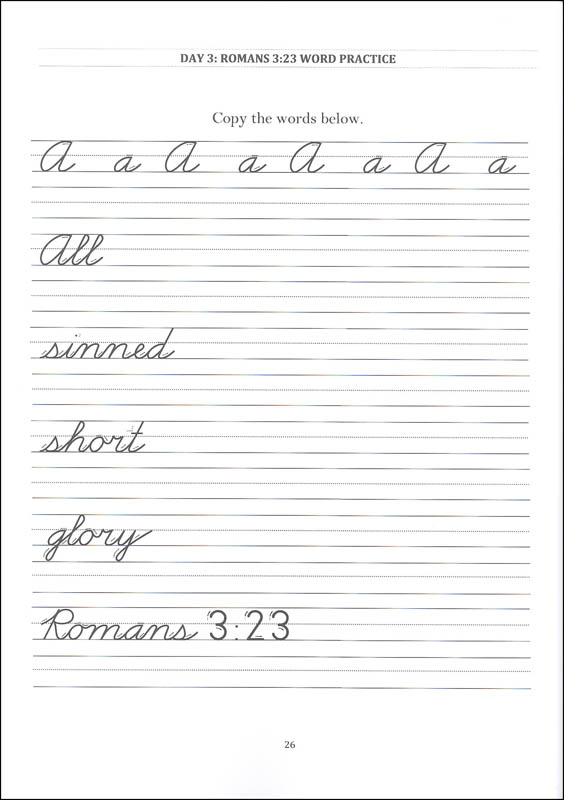 DAY 3: ROMANS 3:23 WORD PRACTICE
Copy the words below.
A a A a A a A a
All
sinned
short
glory
Romans 3:23
26